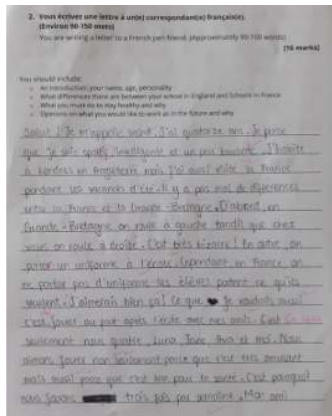 2. Vous écrivez une lettre à un(e) correspondant(e) français(e).
(Environ 90-150 mots)
You are writing a letter to a French pen-friend. (Approximately 90-150 words)
[16 marks]
You should include:
An introduction: your name, age, personality
What differences there are between your school in England and Schools in France
What you must do to stay healthy and why
Opinions on what you would like to work as in the future and why
Salut ! Je m'appelle J'ai quatorze ans. Je pense
que je suis sportif, intelligente et un peu bavarde. J'habite
à Londres en Angleterre mais j'ai aussi visité la France
pendant les vacances d'été. Il y a pas mal de différences
entre la France et la Grande-Bretagne. D'abord, en
Grande-Bretagne on roule à gauche tandis que chez
vous on roule à droite. C'est très bizarre ! En outre, on
porter un uniforme à l'école. Cependant, en France, on
ne porter pas d'uniforme, les élèves portent ce qu'ils
veulent. J'aimerais bien ça ! Ce que je voudrais aussi
c'est jouer au parc après l'école avec mes amis. C'est
seulement nous quatre, Luna, Jade, Ava et moi. Nous
aimons jouer non seulement parce que c'est très amusant
mais aussi parce que c'est bon pour la santé. C'est pourquoi
nous jouons trois fois par semaine. Mon ami